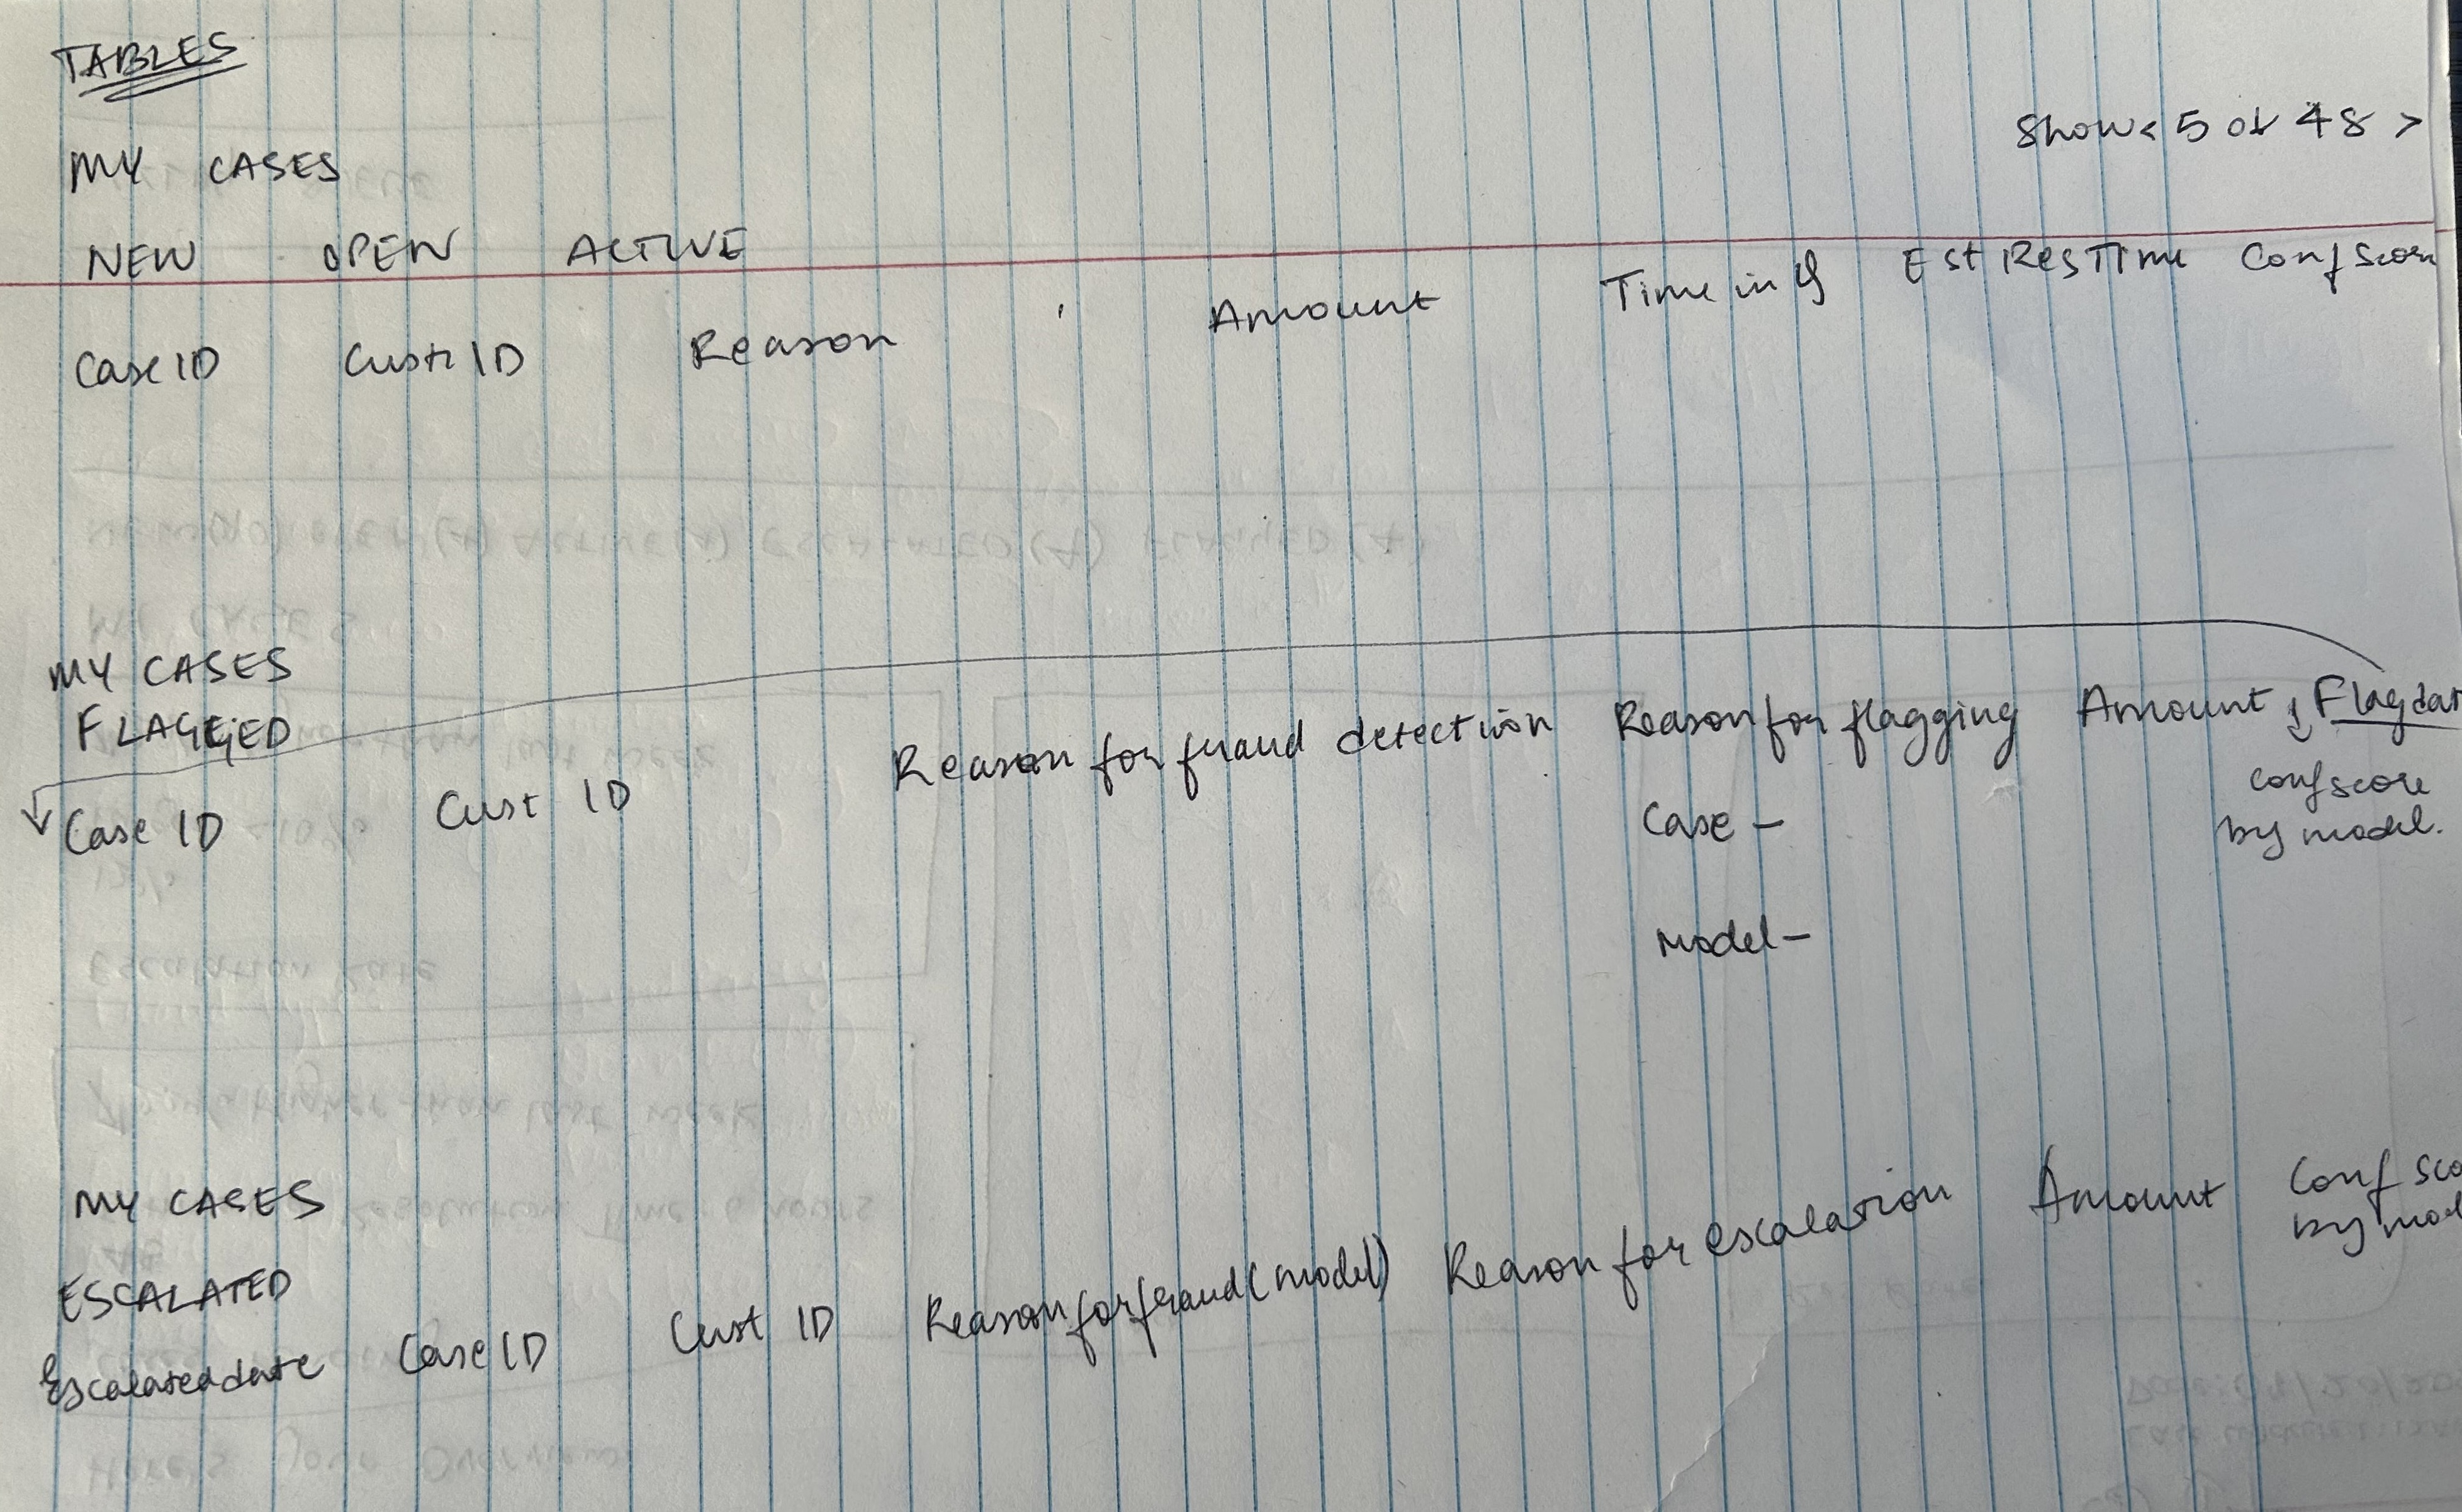 TABLES
Show < 5 of 48 >
MY CASES
NEW OPEN ACTIVE
Case ID Cust ID Reason Amount Time in Q Est Res Time Conf Score
MY CASES
FLAGGED
Case ID Cust ID Reason for fraud detection Reason for flagging Amount Flag dat
conf score
by model.
Case -
Model -
MY CASES
ESCALATED
Escalated date Case ID Cust ID Reason for fraud (model) Reason for escalation Amount Conf sco
by mod